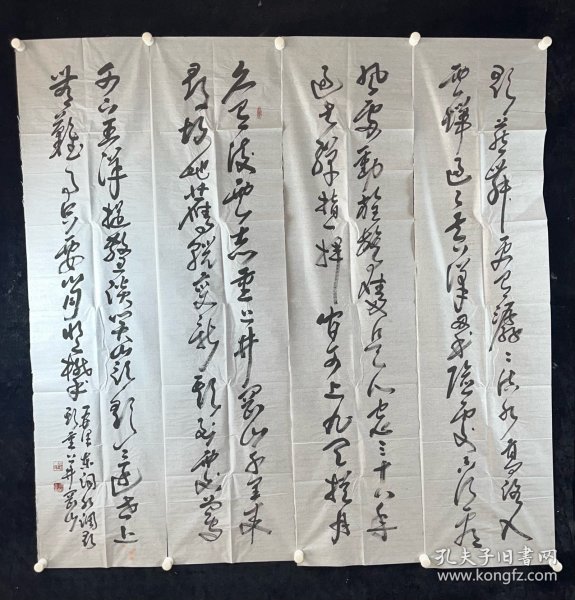 歌燕舞更有潺潺流水高路入
云端过了黄洋界险处不须看
风雷动旌旗奋是人寰三十八年
过去弹指一挥间可上九天揽月
久有凌云志重上井冈山千里来
寻故地旧貌变新颜到处莺
可下五洋捉鳖谈笑凯歌还世上
无难事只要肯登攀
泽东词水调歌
头重上井冈山
孔夫子旧书网
www.kongfz.com